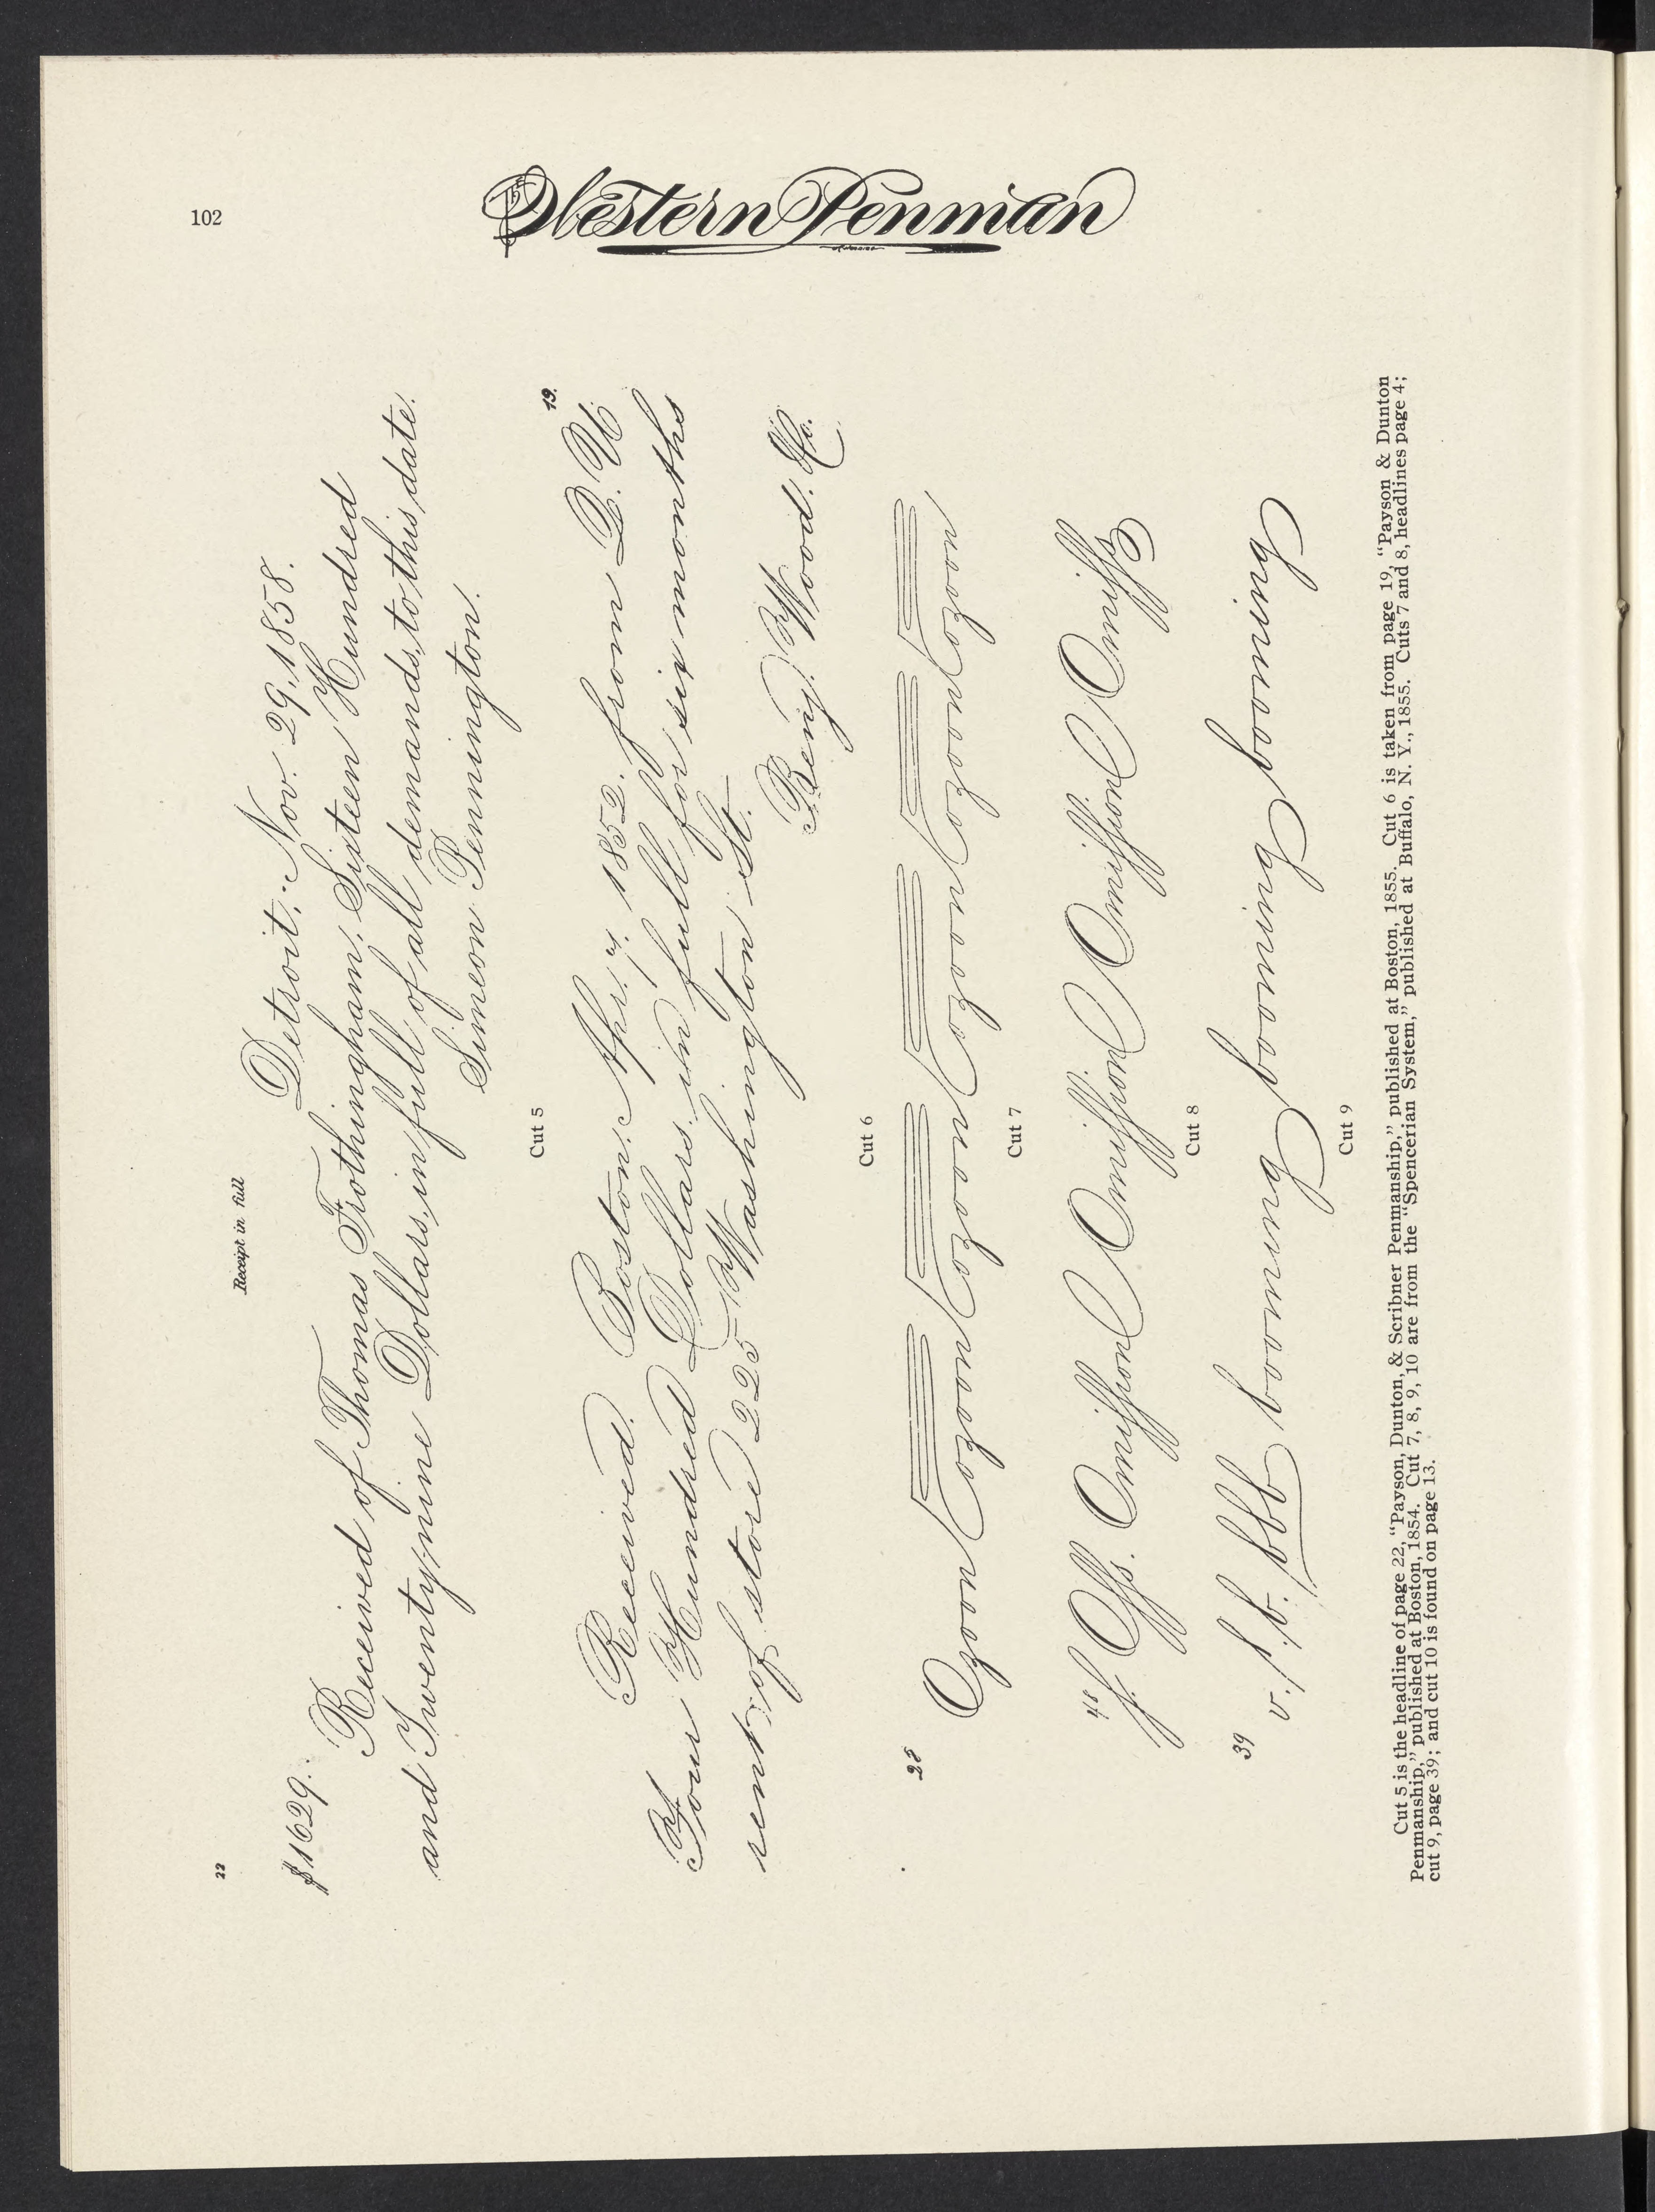 102
Western Penman
22
Receipt in full
$1629. Detroit, Nov. 29, 1858.
Received of Thomas Frothingham, Sixteen Hundred
and Twenty-nine Dollars, in full of all demands, to this date.
Simeon Pennington.
Cut 5
19.
Received, Boston, Apr. 7, 1852, from D. U.
Four Hundred Dollars in full for six months
rent of store 225 Washington St.
Benj. Wood, & Co.
Cut 6
28
Ozoon ozoon ozoon ozoon ozoon ozoon
Cut 7
48
f. Offs. Omiffion Omiffion Omiffion Omiffs
Cut 8
39
v. / b. b. / bbb booming booming booming booming
Cut 9
Cut 5 is the headline of page 22, "Payson, Dunton, & Scribner Penmanship," published at Boston, 1855. Cut 6 is taken from page 19, "Payson & Dunton
Penmanship," published at Boston, 1854. Cut 7, 8, 9, 10 are from the "Spencerian System," published at Buffalo, N. Y., 1855. Cuts 7 and 8, headlines page 4;
cut 9, page 39; and cut 10 is found on page 13.